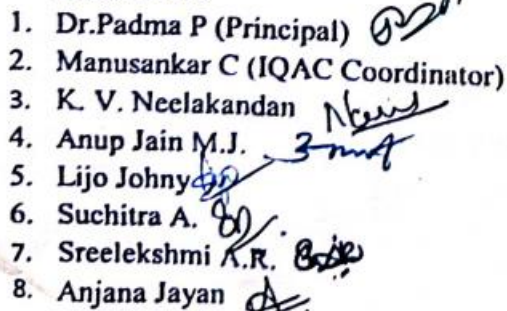 1. Dr.Padma P (Principal)
2. Manusankar C (IQAC Coordinator)
3. K. V. Neelakandan
4. Anup Jain M.J.
5. Lijo Johny
6. Suchitra A.
7. Sreelekshmi A.R.
8. Anjana Jayan